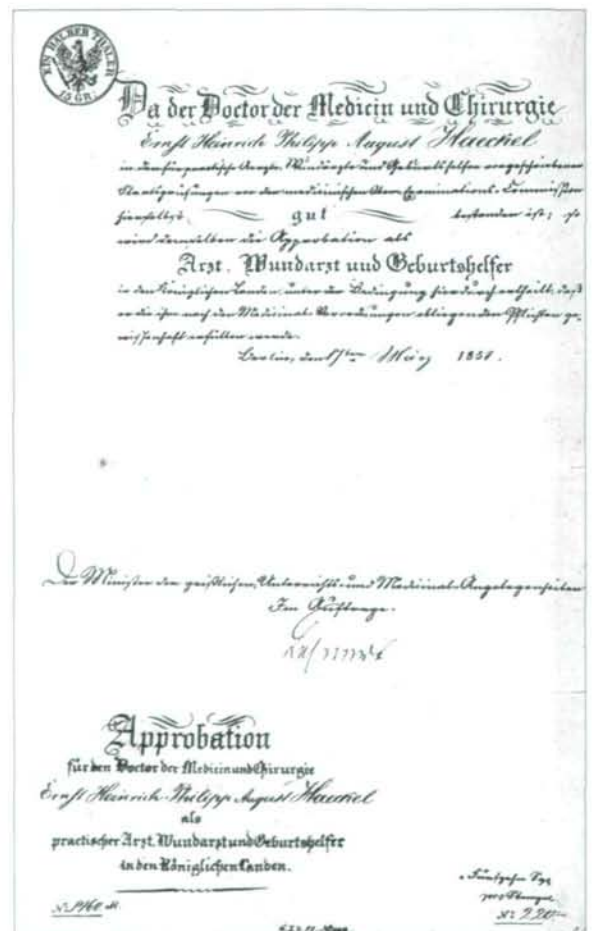 EIN HALBER THALER
15 GR.
Da der Doctor der Medicin und Chirurgie
Ernst Heinrich Philipp August Haeckel
in den für practische Aerzte, Wundärzte und Geburtshelfer vorgeschriebenen
Staatsprüfungen vor der medicinischen Ober-Examinations-Commission
hierselbst gut bestanden ist; so
wird demselben die Approbation als
Arzt, Wundarzt und Geburtshelfer
in den Königlichen Landen, unter der Bedingung hierdurch ertheilt, daß
er die ihm nach den Medicinal-Verordnungen obliegenden Pflichten ge-
wissenhaft erfüllen werde.
Berlin, den März 1858.
Der Minister der geistlichen, Unterrichts- und Medicinal-Angelegenheiten
Im Auftrage.
Approbation
für den Doctor der Medicin und Chirurgie
Ernst Heinrich Philipp August Haeckel
als
practischer Arzt, Wundarzt und Geburtshelfer
in den Königlichen Landen.